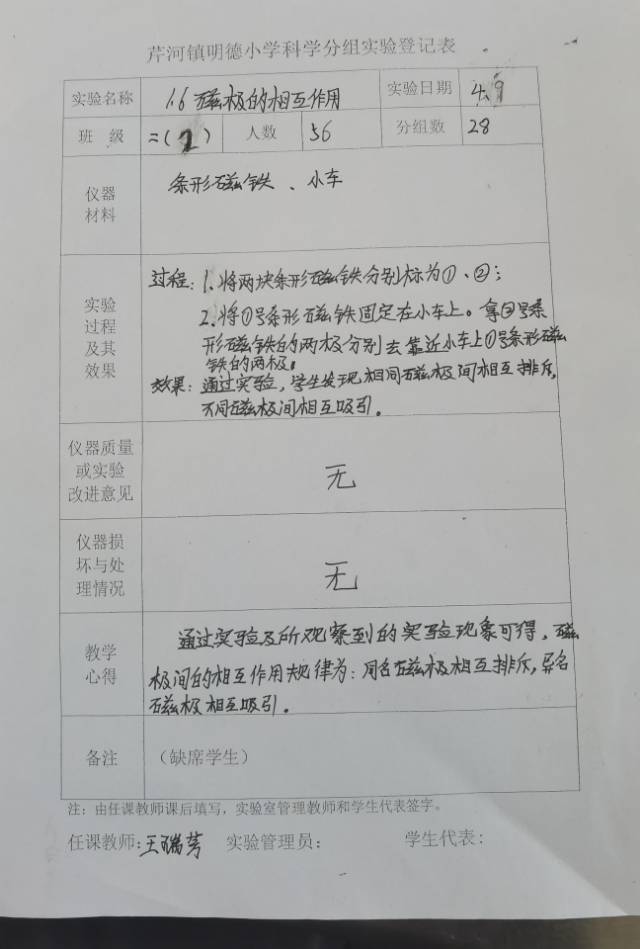 芹河镇明德小学科学分组实验登记表
实验名称 1.6 磁极的相互作用 实验日期 4.9
班 级 二(2) 人数 56 分组数 28
仪器
材料
条形磁铁、小车
实验
过程
及其
效果
过程:1.将两块条形磁铁分别标为①、②;
2.将①号条形磁铁固定在小车上。拿②号条
形磁铁的两极分别去靠近小车上①号条形磁
铁的两极。
效果:通过实验,学生发现相同磁极间相互排斥,
不同磁极间相互吸引。
仪器质量
或实验
改进意见
无
仪器损
坏与处
理情况
无
教学
心得
通过实验及所观察到的实验现象可得,磁
极间的相互作用规律为:同名磁极相互排斥,异名
磁极相互吸引。
备注 (缺席学生)
注:由任课教师课后填写,实验室管理教师和学生代表签字。
任课教师:王瑞芳 实验管理员: 学生代表: